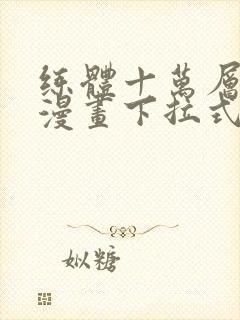 练體十萬層
漫畫下拉式
姒糖